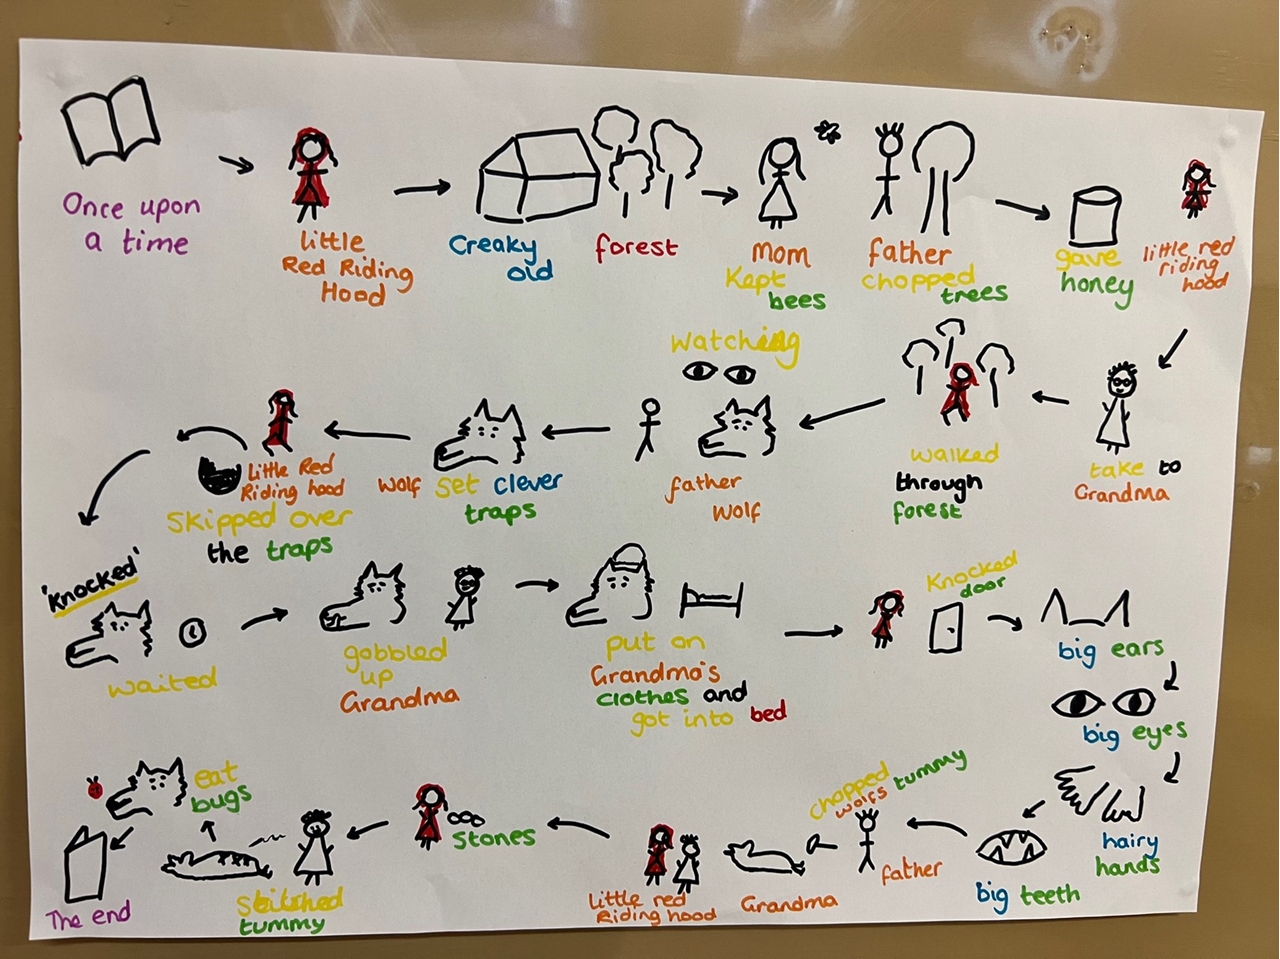 Once upon
a time
little
Red Riding
Hood
Creaky
old
forest
Mom
Kept
bees
father
chopped
trees
gave
honey
little red
riding
hood
take to
Grandma
walked
through
forest
watching
father
wolf
wolf set clever
traps
Little Red
Riding hood
skipped over
the traps
'knocked'
waited
gobbled
up
Grandma
put on
Grandma's
clothes and
got into bed
Knocked
door
big ears
big eyes
hairy
hands
big teeth
chopped tummy
wolfs
father
Grandma
Little red
Riding hood
Stones
stitched
tummy
eat
bugs
The end